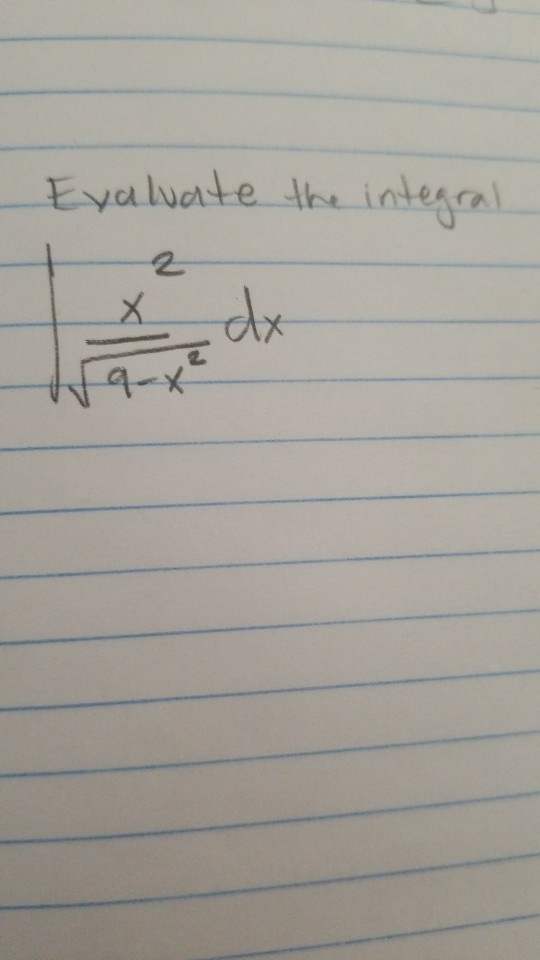 Evaluate the integral
∫ x² / √(9-x²) dx